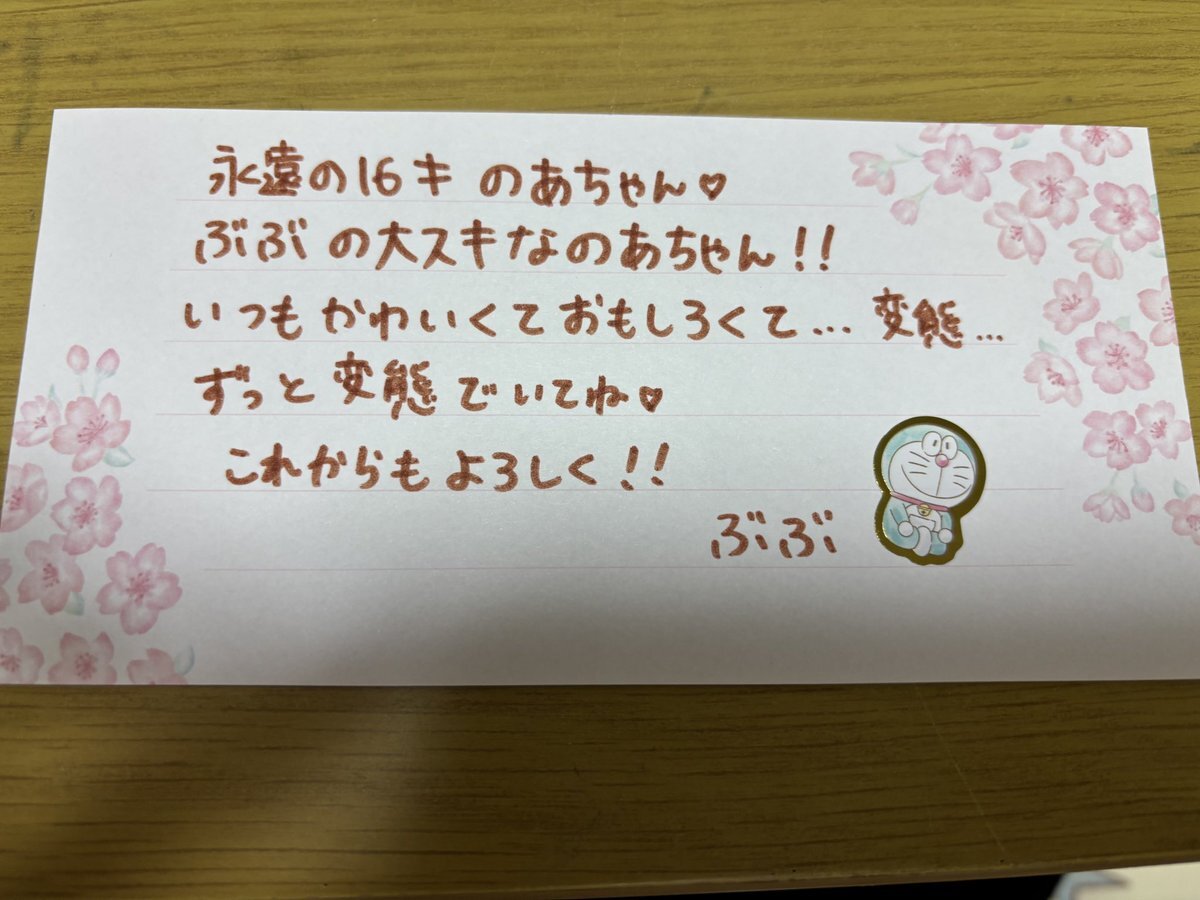 永遠の16キ のあちゃん♡
ぶぶの大スキなのあちゃん!!
いつもかわいくておもしろくて…変態…
ずっと変態でいてね♡
これからもよろしく!!
ぶぶ